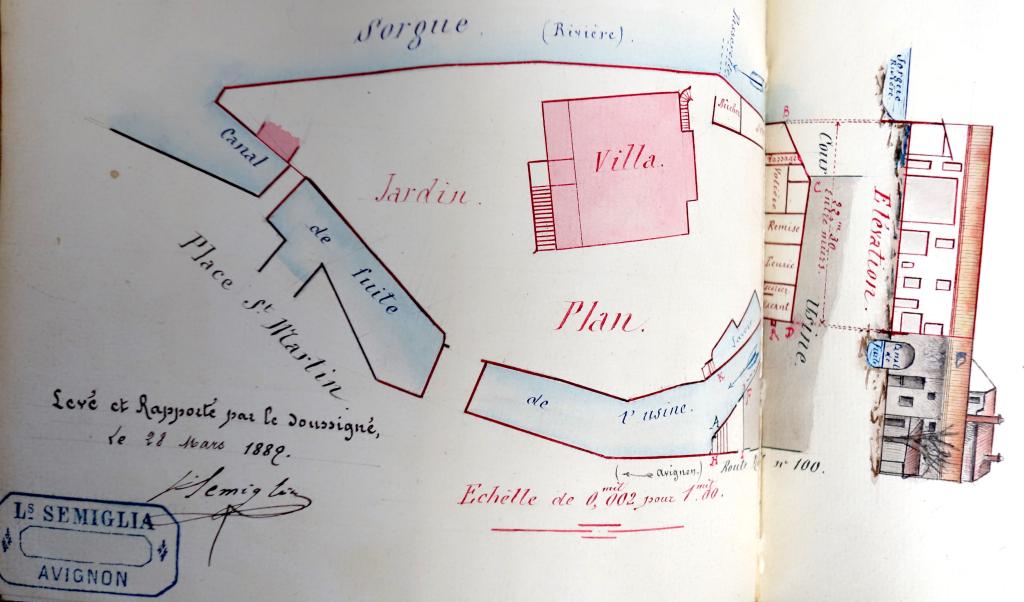 Sorgue.
(Rivière).
Passerelle
Sorgue
Rivière
Canal
Jardin.
Villa.
B
Passage
Cour
Volière
C
22.m 30
entre murs.
Elévation.
Remise
Ecurie
de
fuite
Place St Martin
Plan.
Usine
R
D
Canal
de
fuite
Lavoir
K
F
A
H
de
l'usine.
Levé et Rapporté par le soussigné,
Le 28 Mars 1882.
(← Avignon.)
Route
n° 100.
Echelle de 0,mil002 pour 1mil.00.
Semiglia
Ls SEMIGLIA
AVIGNON